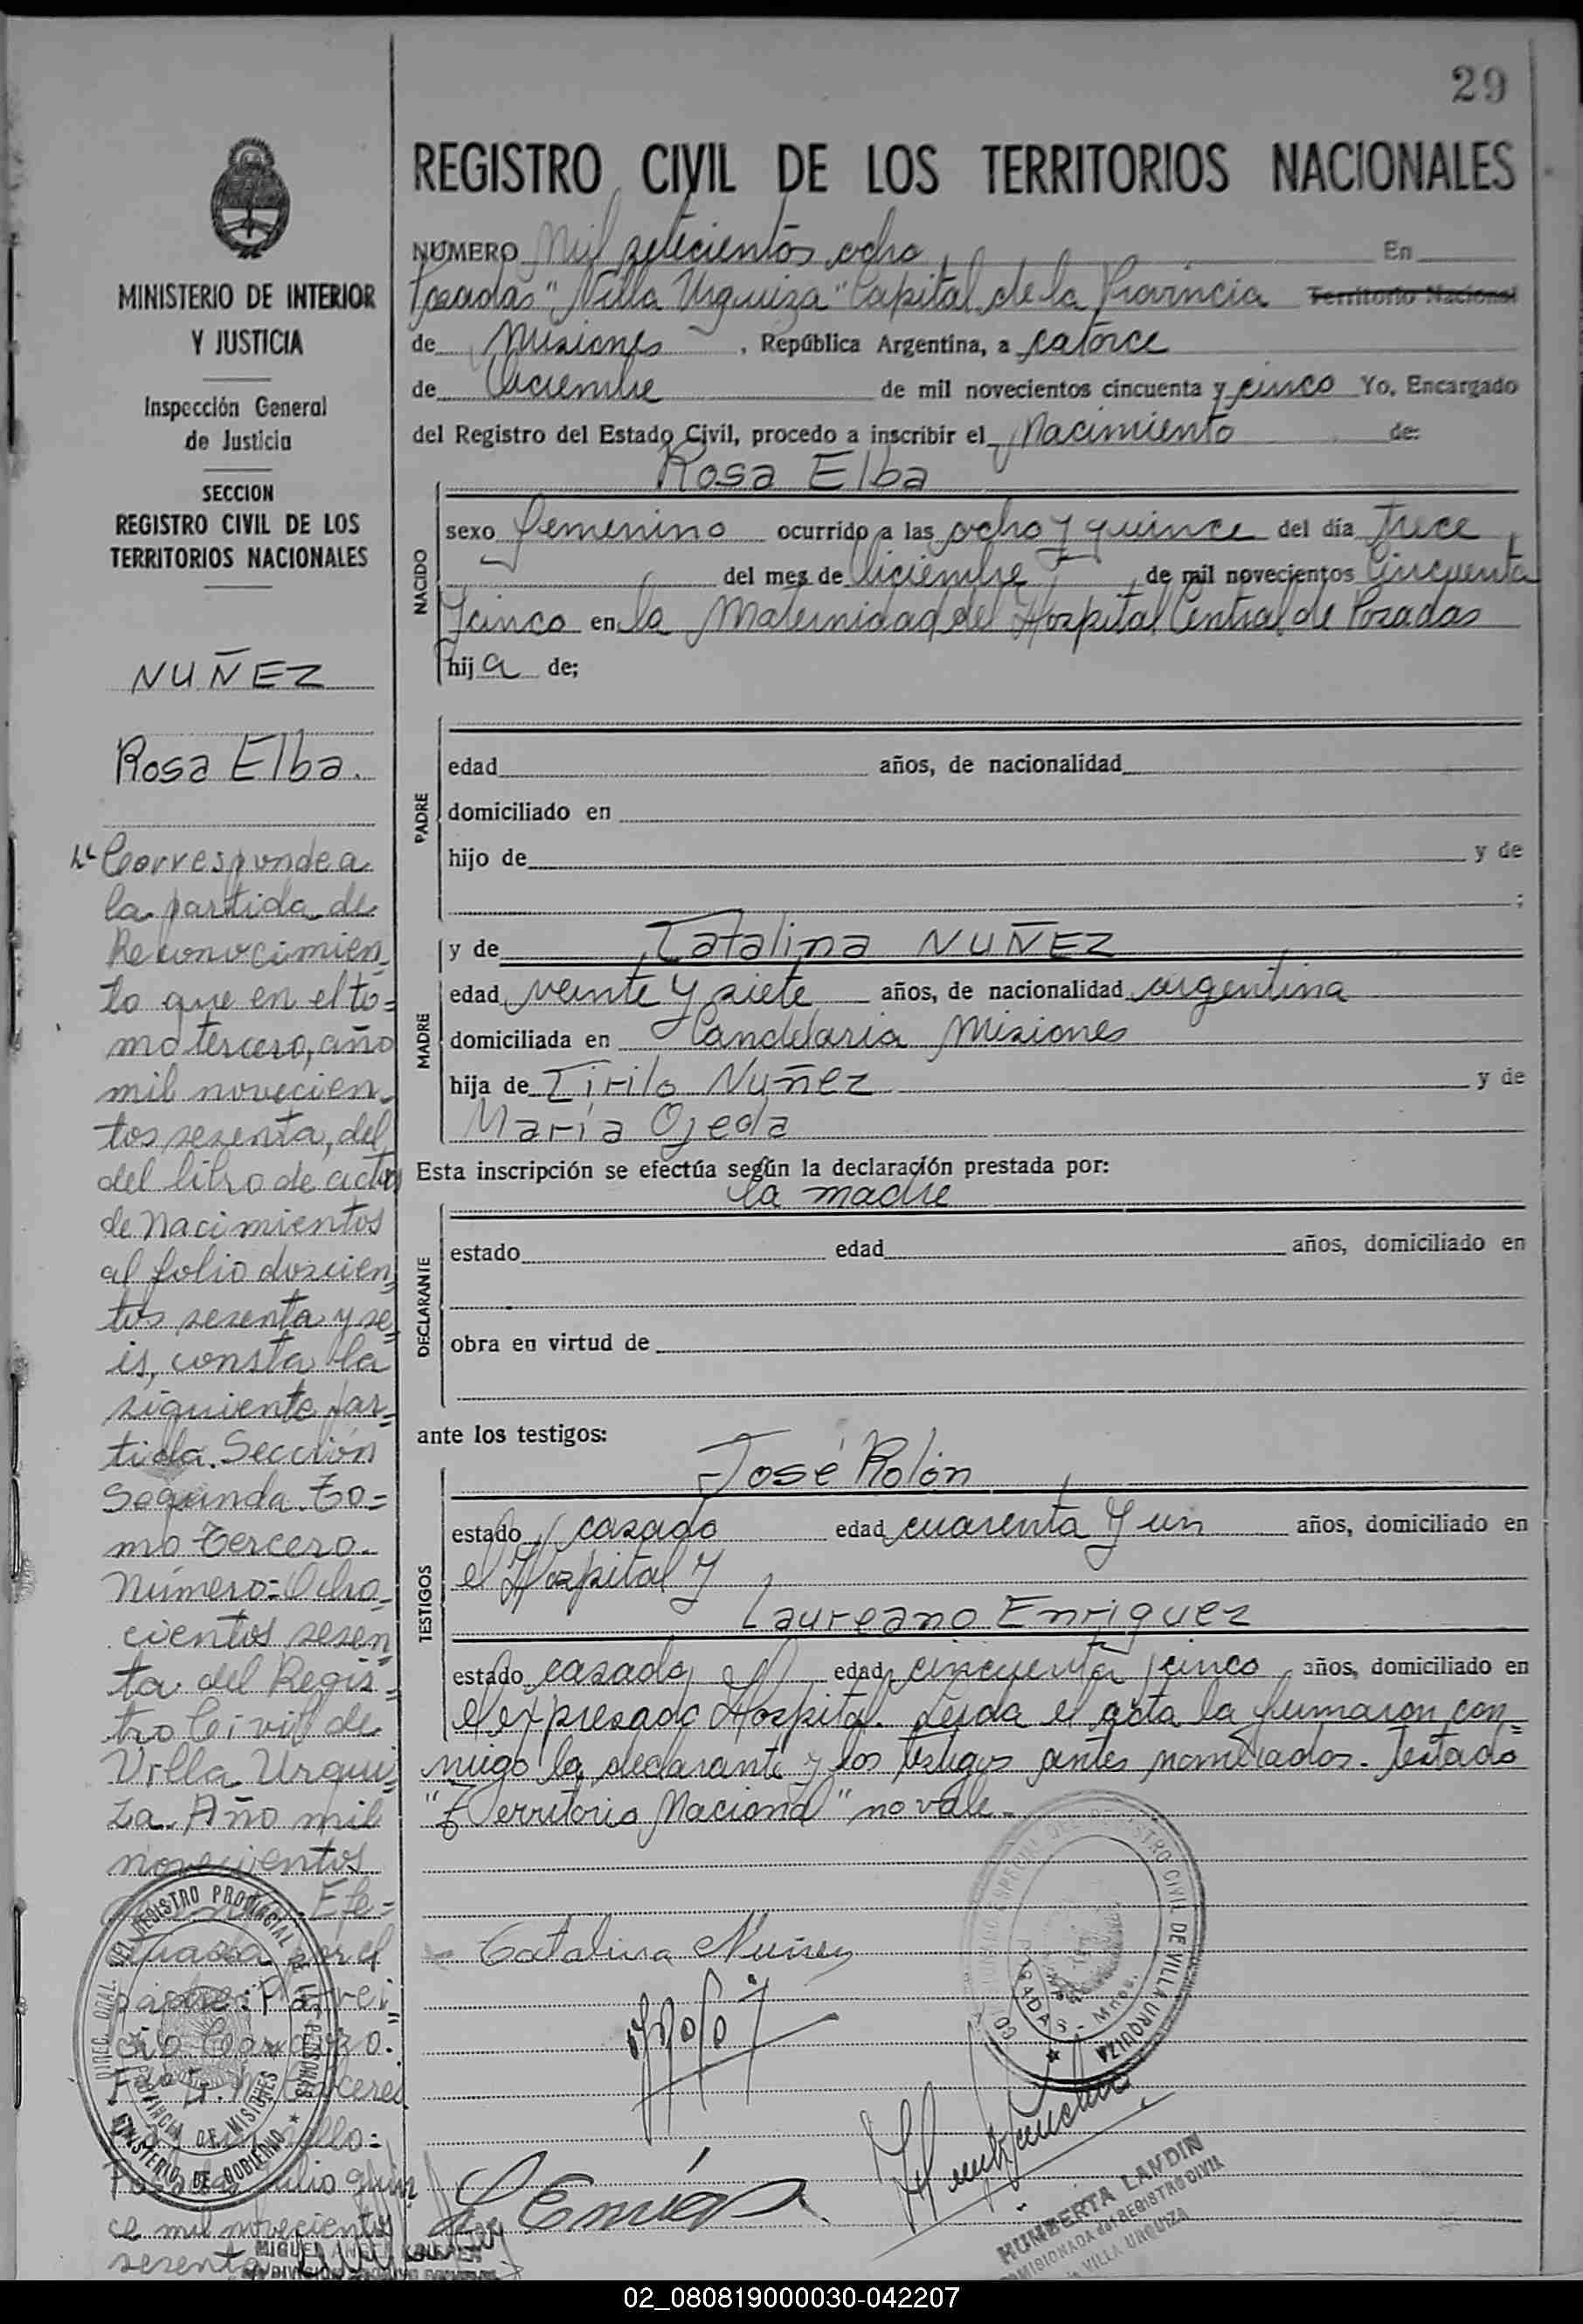 29
REGISTRO CIVIL DE LOS TERRITORIOS NACIONALES
NUMERO Mil setecientos ocho En
Posadas "Villa Urquiza" Capital de la Provincia Territorio Nacional
de Misiones, República Argentina, a catorce
de Diciembre de mil novecientos cincuenta y cinco Yo, Encargado
del Registro del Estado Civil, procedo a inscribir el Nacimiento de:
Rosa Elba
NACIDO
sexo femenino ocurrido a las ocho y quince del día trece
del mes de Diciembre, de mil novecientos Cincuenta
y cinco en la Maternidad del Hospital Central de Posadas
hija de;
PADRE
edad años, de nacionalidad
domiciliado en
hijo de y de
;
MADRE
y de Catalina NUÑEZ
edad veinte y siete años, de nacionalidad argentina
domiciliada en Candelaria Misiones
hija de Cirilo Nuñez y de
María Ojeda
Esta inscripción se efectúa según la declaración prestada por:
la madre
DECLARANTE
estado edad años, domiciliado en
obra en virtud de
ante los testigos:
TESTIGOS
José Rolón
estado casado edad cuarenta y un años, domiciliado en
el Hospital y
Laureano Enriquez
estado casado edad cincuenta y cinco años, domiciliado en
el expresado Hospital. Leida el acta la firmaron con
migo la declarante y los testigos antes nombrados. Testado
"Territorio Nacional" no vale.
Catalina Nuñez
HUMBERTA LANDIN
COMISIONADA del REGISTRO CIVIL
VILLA URQUIZA
REGISTRO CIVIL DE VILLA URQUIZA
POSADAS - Mnes.
MINISTERIO DE INTERIOR
Y JUSTICIA
Inspección General
de Justicia
SECCION
REGISTRO CIVIL DE LOS
TERRITORIOS NACIONALES
NUÑEZ
Rosa Elba.
Corresponde a
la partida de
Reconocimien-
to que en el to=
mo tercero, año
mil novecien-
tos sesenta, del
del libro de actas
de Nacimientos
al folio doscien-
tos sesenta y se=
is, consta la
siguiente par=
tida. Sección
Segunda. To=
mo Tercero.
Número=Ocho-
cientos sesen=
ta del Regis=
tro Civil de
Villa Urqui=
za. Año mil
novecientos
Efe=
tuada por el
padre:
ce mil novecientos
sesenta
DIREC. GRAL. DEL REGISTRO PROVINCIAL DE LAS PERSONAS
PROVINCIA DE MISIONES
MINISTERIO DE GOBIERNO
02_080819000030-042207